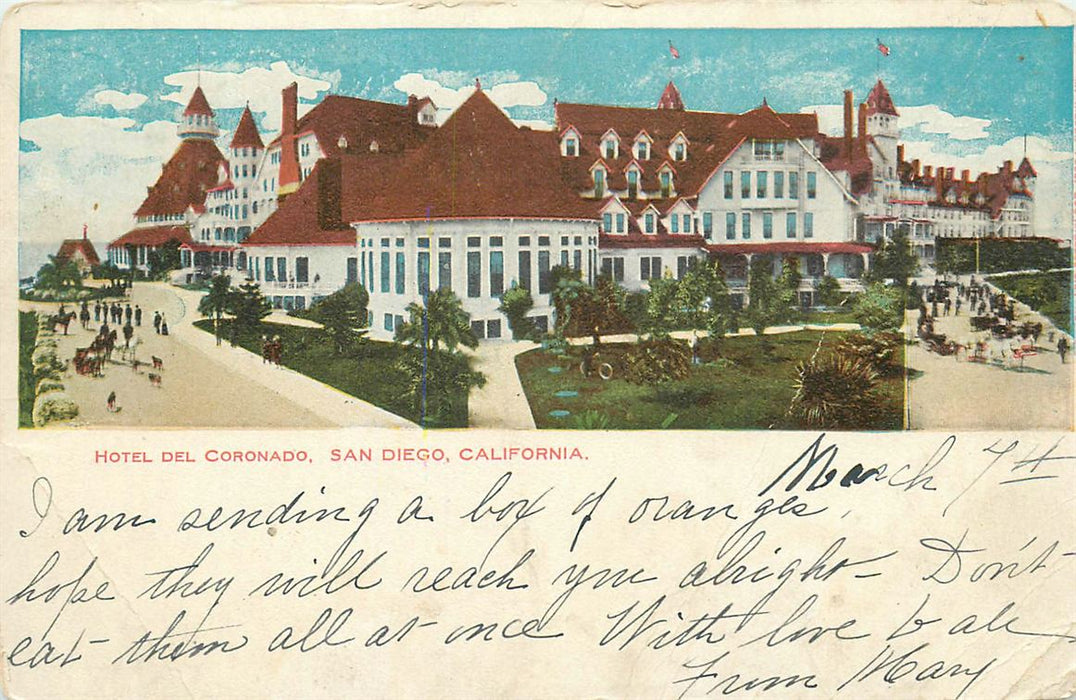 HOTEL DEL CORONADO, SAN DIEGO, CALIFORNIA.
March 7th
I am sending a box of oranges,
hope they will reach you alright - Don't
eat them all at once With love to all
From Mary